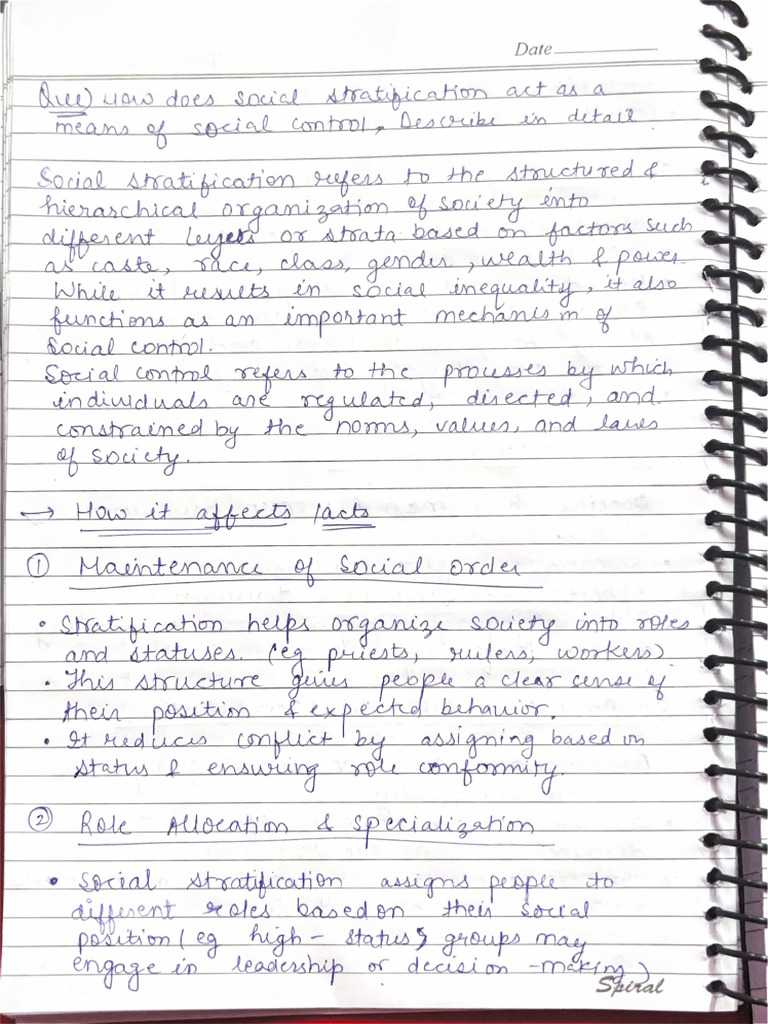 Date
Que) How does social stratification act as a
means of social control, Describe in detail
Social stratification refers to the structured &
hierarchical organization of society into
different leyers or strata based on factors such
as caste, race, class, gender, wealth & power.
While it results in social inequality, it also
functions as an important mechanism of
social control.
Social control refers to the processes by which
individuals are regulated, directed, and
constrained by the norms, values, and laws
of society.
→ How it affects /acts
① Maintenance of Social order
• Stratification helps organize society into roles
and statuses. (eg priests, rulers, workers)
• This structure gives people a clear sense of
their position & expected behavior.
• It reduces conflict by assigning based on
status & ensuring role conformity.
② Role Allocation & Specialization
• Social stratification assigns people to
different roles based on their social
position (eg high - status groups may
engage in leadership or decision -making)
Spiral